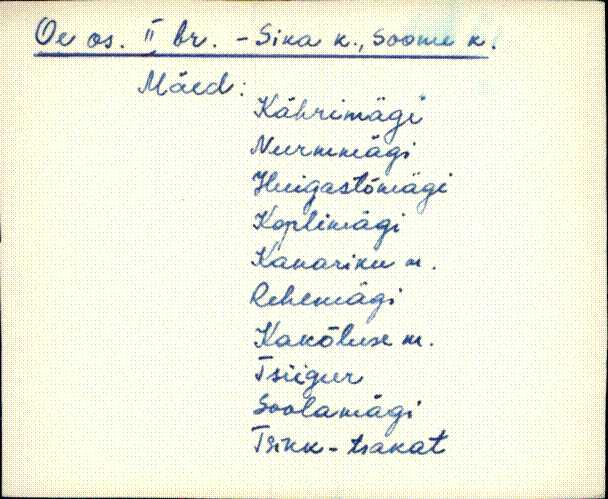 Oe os. II br. - Sika k., Soome k.
Mäed:
Kährimägi
Nurmmägi
Huigastõmägi
Koplimägi
Kanariku m.
Rehemägi
Kakõluse m.
Tsiigur
Soolamägi
Tsikk-tsakat